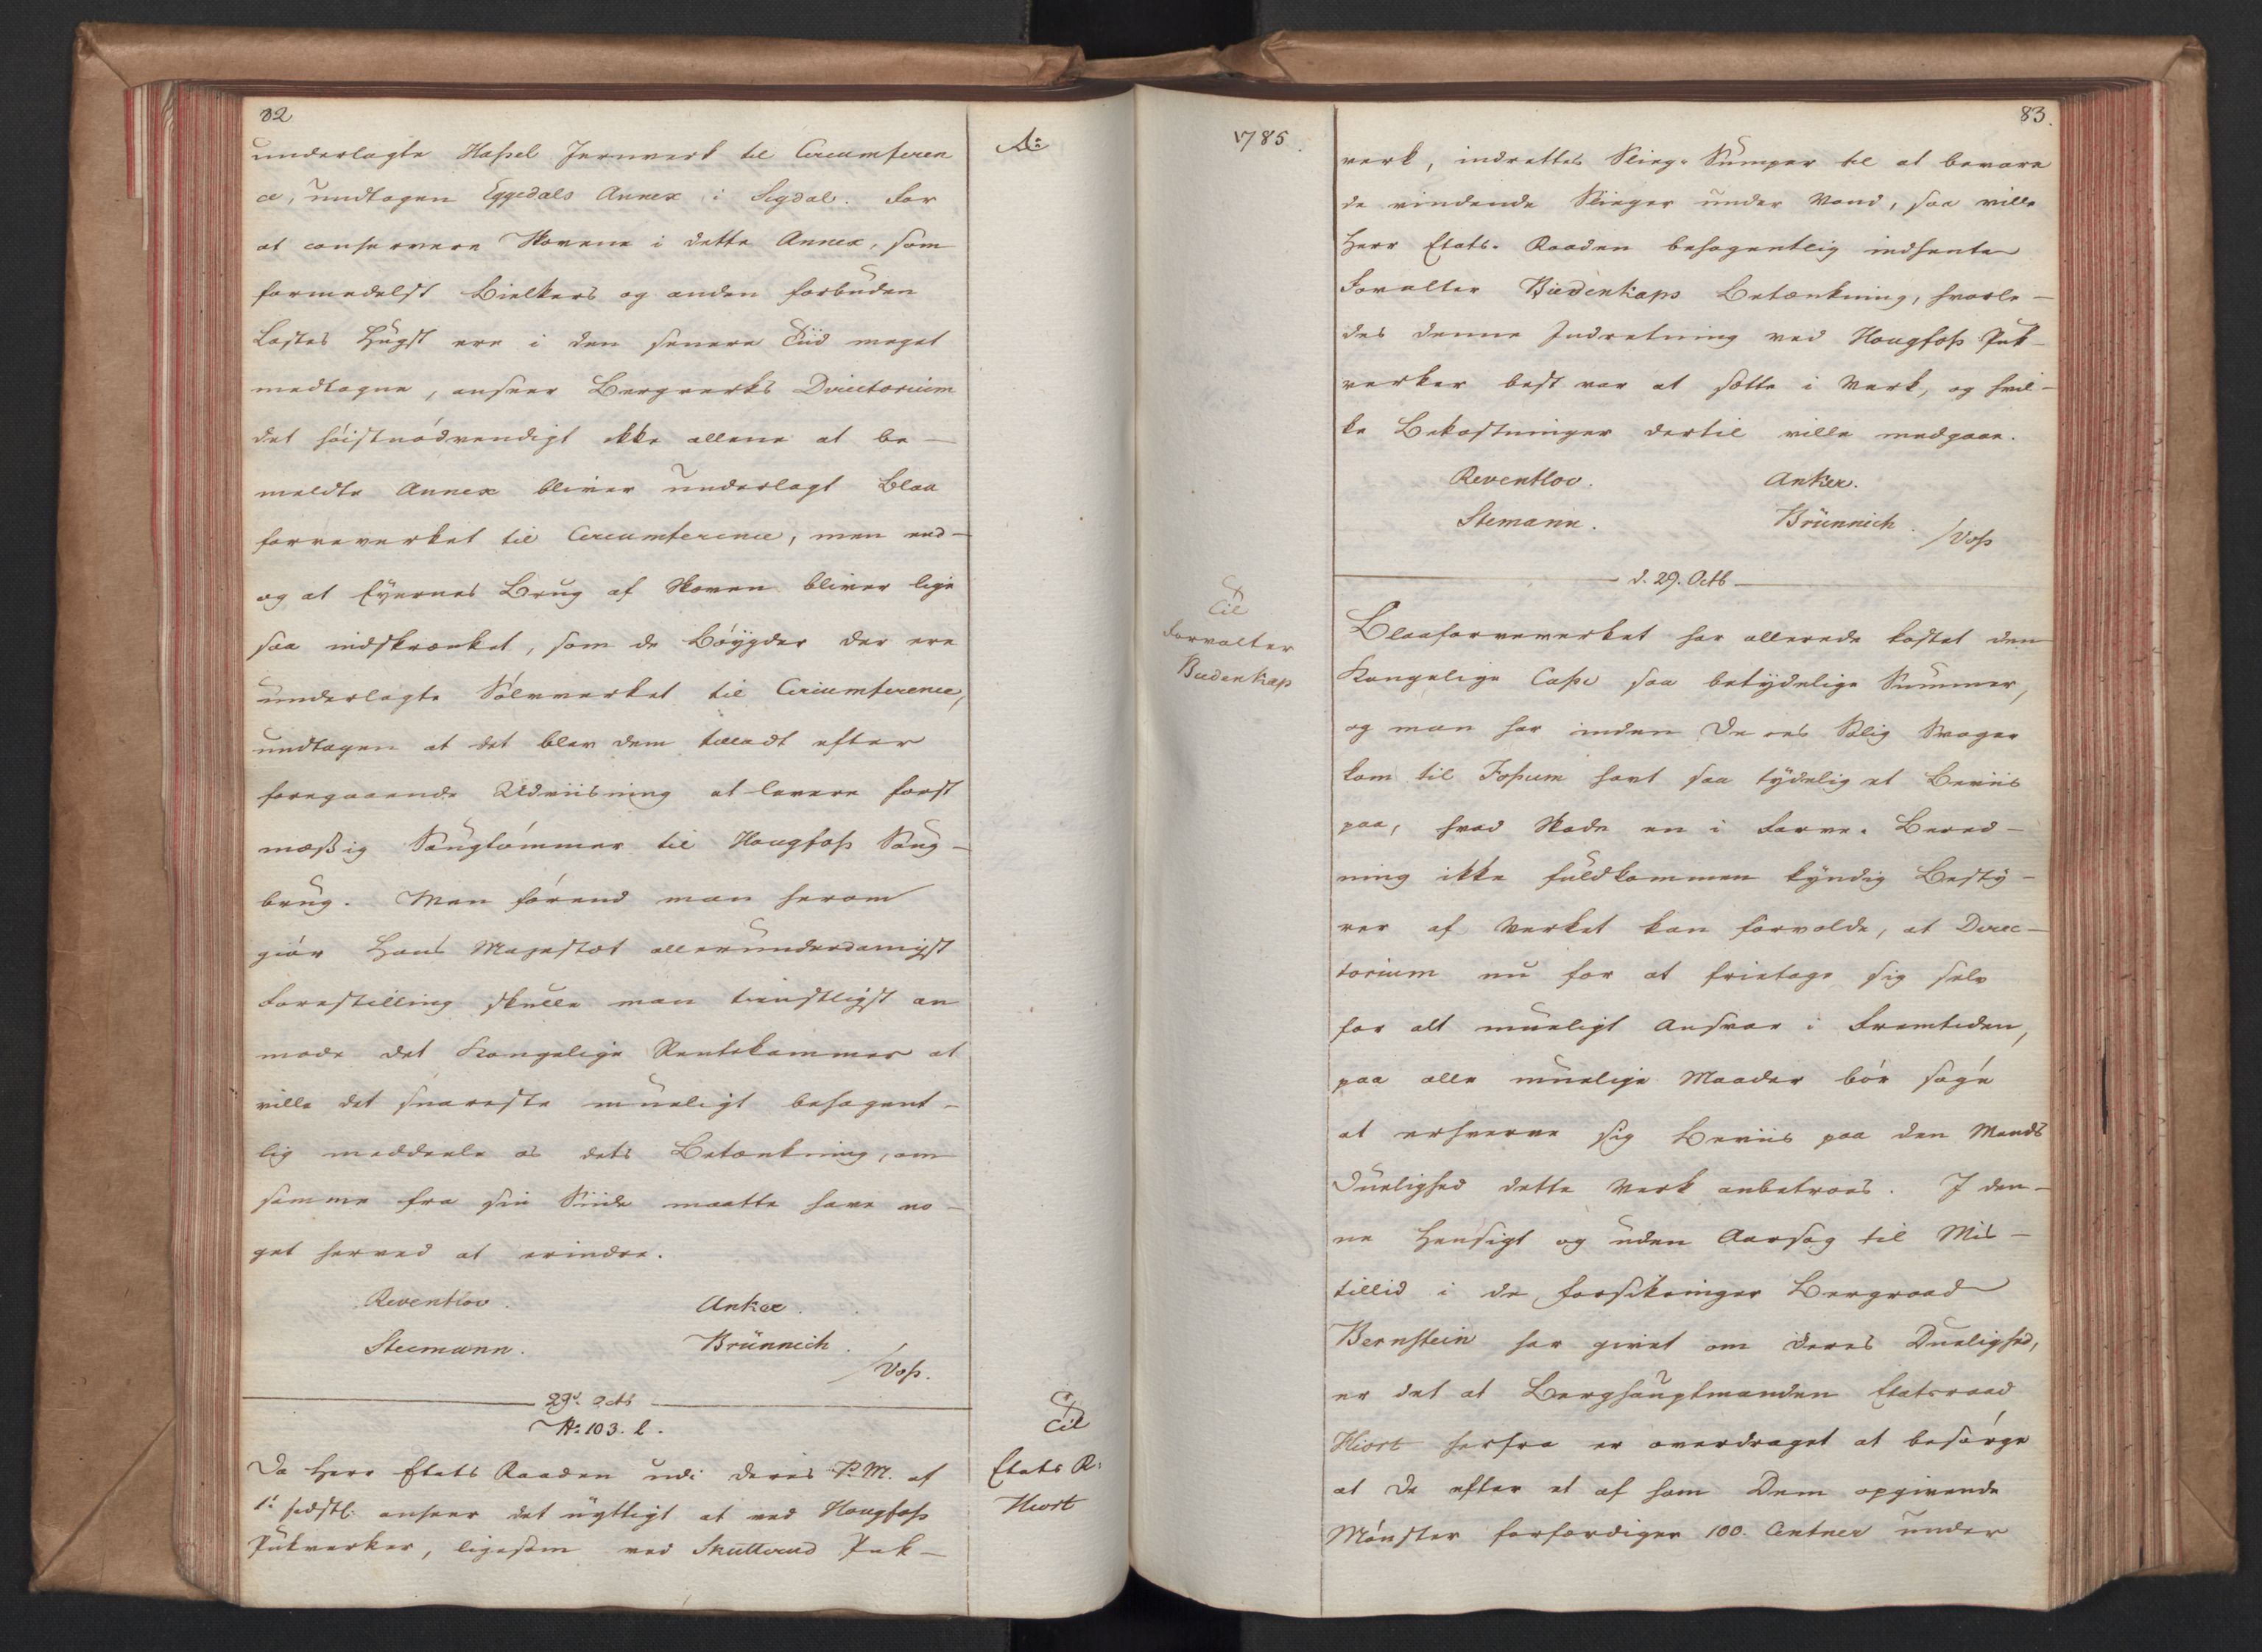 82
underlagte Hassel Jernverk til Circumferen
ce, undtagen Eggedals Annex i Sigdal. For
at conservere Skovene i dette Annex, som
formedelst Bielkers og anden forbuden
Lastes Hugst ere i den senere Tiid meget
medtagne, anseer Bergverks Directorium
det høistnødvendigt ikke allene at be-
meldte Annex bliver underlagt Blaa
farveverket til Circumference, men end-
og at Eyernes Brug af Skoven bliver lige
saa indskrænket, som de Bøygder der ere
underlagte Sølvverket til Circumference,
undtagen at det blev dem tilladt efter
foregaaende Udviisning at levere forst
mæssig Saugtømmer til Hougfoss Saug-
brug. Men førend man herom
giør Hans Majestæt allerunderdanigst
Forestilling skulle man tienstligst an
mode det Kongelige Rentekammer at
ville det snareste mueligt behagent-
lig meddeele os dets Betænkning, om
samme fra sin Siide maatte have no-
get herved at erindre.
Reventlov. Anker.
Stemann. Brünnich.
/Voss.
29d Octb
No 103. l.
Da Herr Etats Raaden udi deres P.M. af
1te sidstl: anseer det nyttigt at ved Hougfoss
Pukverker, ligesom ved Skutterud Puk-
Ao
Til
Etats R:
Hiort
1785.
Til
Forvalter
Budenkap
83.
verk, indrettes Slieg-Sumper til at bevare
de vindende Slieger under Vand, saa ville
Herr Etats-Raaden behagentlig indhente
Forvalter Büdenkaps Betænkning, hvorle-
des denne Indretning ved Hougfoss Puk-
verker best var at sette i Verk, og hvil-
ke Bekostninger dertil ville medgaae.
Reventlov. Anker.
Stemann. Brünnich.
/Voss
d. 29. Octb
Blaafarveverket har allerede kostet den
Kongelige Casse saa betydelige Summer,
og man har inden Deres Salig Svoger
kom til Fossum havt saa tydelig et Beviis
paa, hvad Skade en i Farve-Bered-
ning ikke fuldkommen kyndig Besty-
rer af Verket kan forvolde, at Direc-
torium nu for at frietage sig selv
for alt mueligt Ansvar i Fremtiden,
paa alle muelige Maader bør søge
at erhverve sig Beviis paa den Mands
Duelighed dette Verk anbetroes. I den-
ne Hensigt og uden Aarsag til Mis-
tillid i de Forsikringer Bergraad
Bernstein har givet om Deres Duelighed,
er det at Berghauptmanden Etatsraad
Hiort herfra er overdraget at besørge
at De efter et af ham Dem opgivende
Mønster forfærdiger 100. Centner under